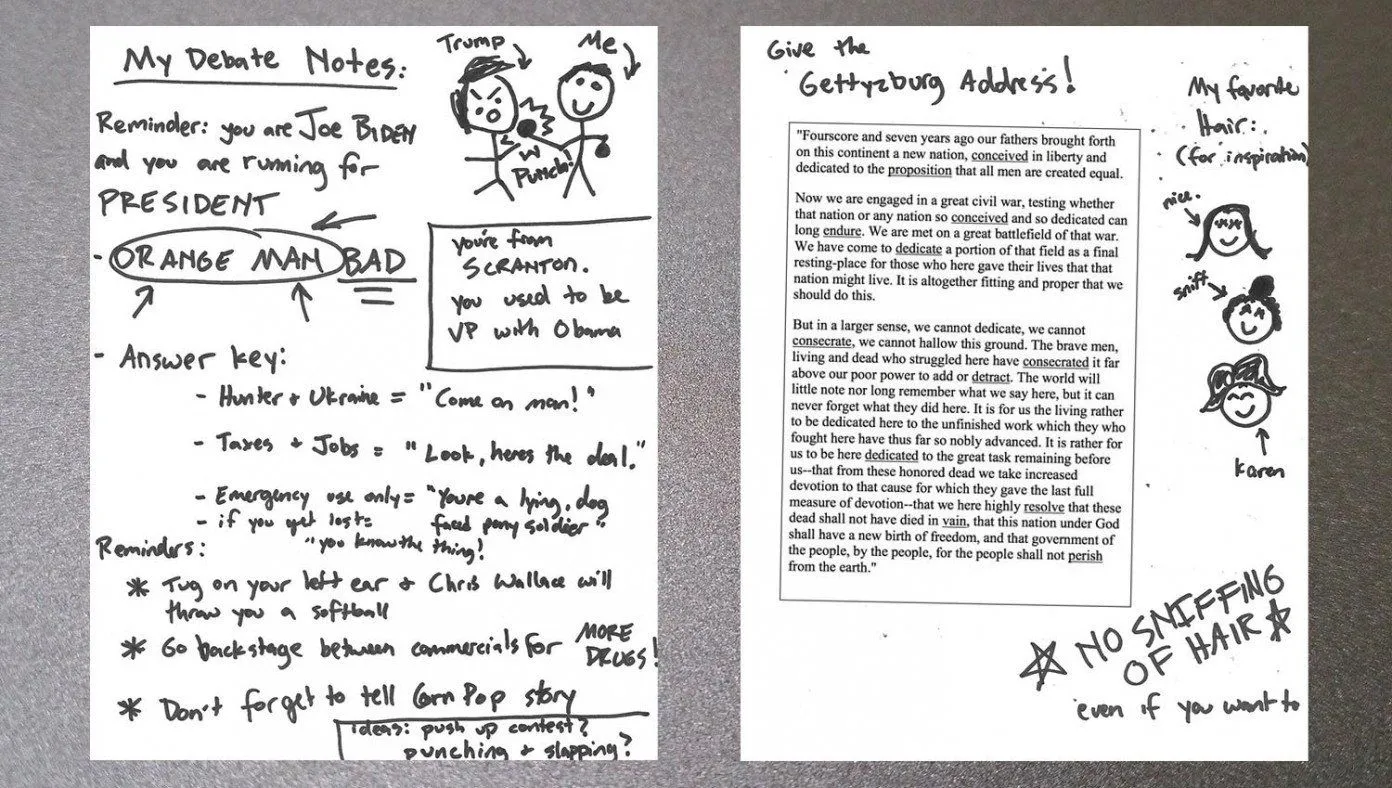 My Debate Notes:
Trump
Me
Punch!
Reminder: you are Joe BIDEN
and you are running for
PRESIDENT
- ORANGE MAN BAD
you're from
SCRANTON.
you used to be
VP with Obama
- Answer key:
- Hunter + Ukraine = "Come on man!"
- Taxes + Jobs = "Look, heres the deal."
- Emergency use only = "You're a lying, dog
faced pony soldier"
- if you get lost =
"you know the thing!
Reminders:
* Tug on your left ear + Chris Wallace will
throw you a softball
* Go backstage between commercials for MORE
DRUGS!
* Don't forget to tell Corn Pop story
ideas: push up contest?
punching + slapping?
Give the
Gettyzburg Address!
"Fourscore and seven years ago our fathers brought forth
on this continent a new nation, conceived in liberty and
dedicated to the proposition that all men are created equal.
Now we are engaged in a great civil war, testing whether
that nation or any nation so conceived and so dedicated can
long endure. We are met on a great battlefield of that war.
We have come to dedicate a portion of that field as a final
resting-place for those who here gave their lives that that
nation might live. It is altogether fitting and proper that we
should do this.
But in a larger sense, we cannot dedicate, we cannot
consecrate, we cannot hallow this ground. The brave men,
living and dead who struggled here have consecrated it far
above our poor power to add or detract. The world will
little note nor long remember what we say here, but it can
never forget what they did here. It is for us the living rather
to be dedicated here to the unfinished work which they who
fought here have thus far so nobly advanced. It is rather for
us to be here dedicated to the great task remaining before
us--that from these honored dead we take increased
devotion to that cause for which they gave the last full
measure of devotion--that we here highly resolve that these
dead shall not have died in vain, that this nation under God
shall have a new birth of freedom, and that government of
the people, by the people, for the people shall not perish
from the earth."
My favorite
Hair:
(for inspiration)
nice.
sniff
karen
NO SNIFFING
OF HAIR
even if you want to